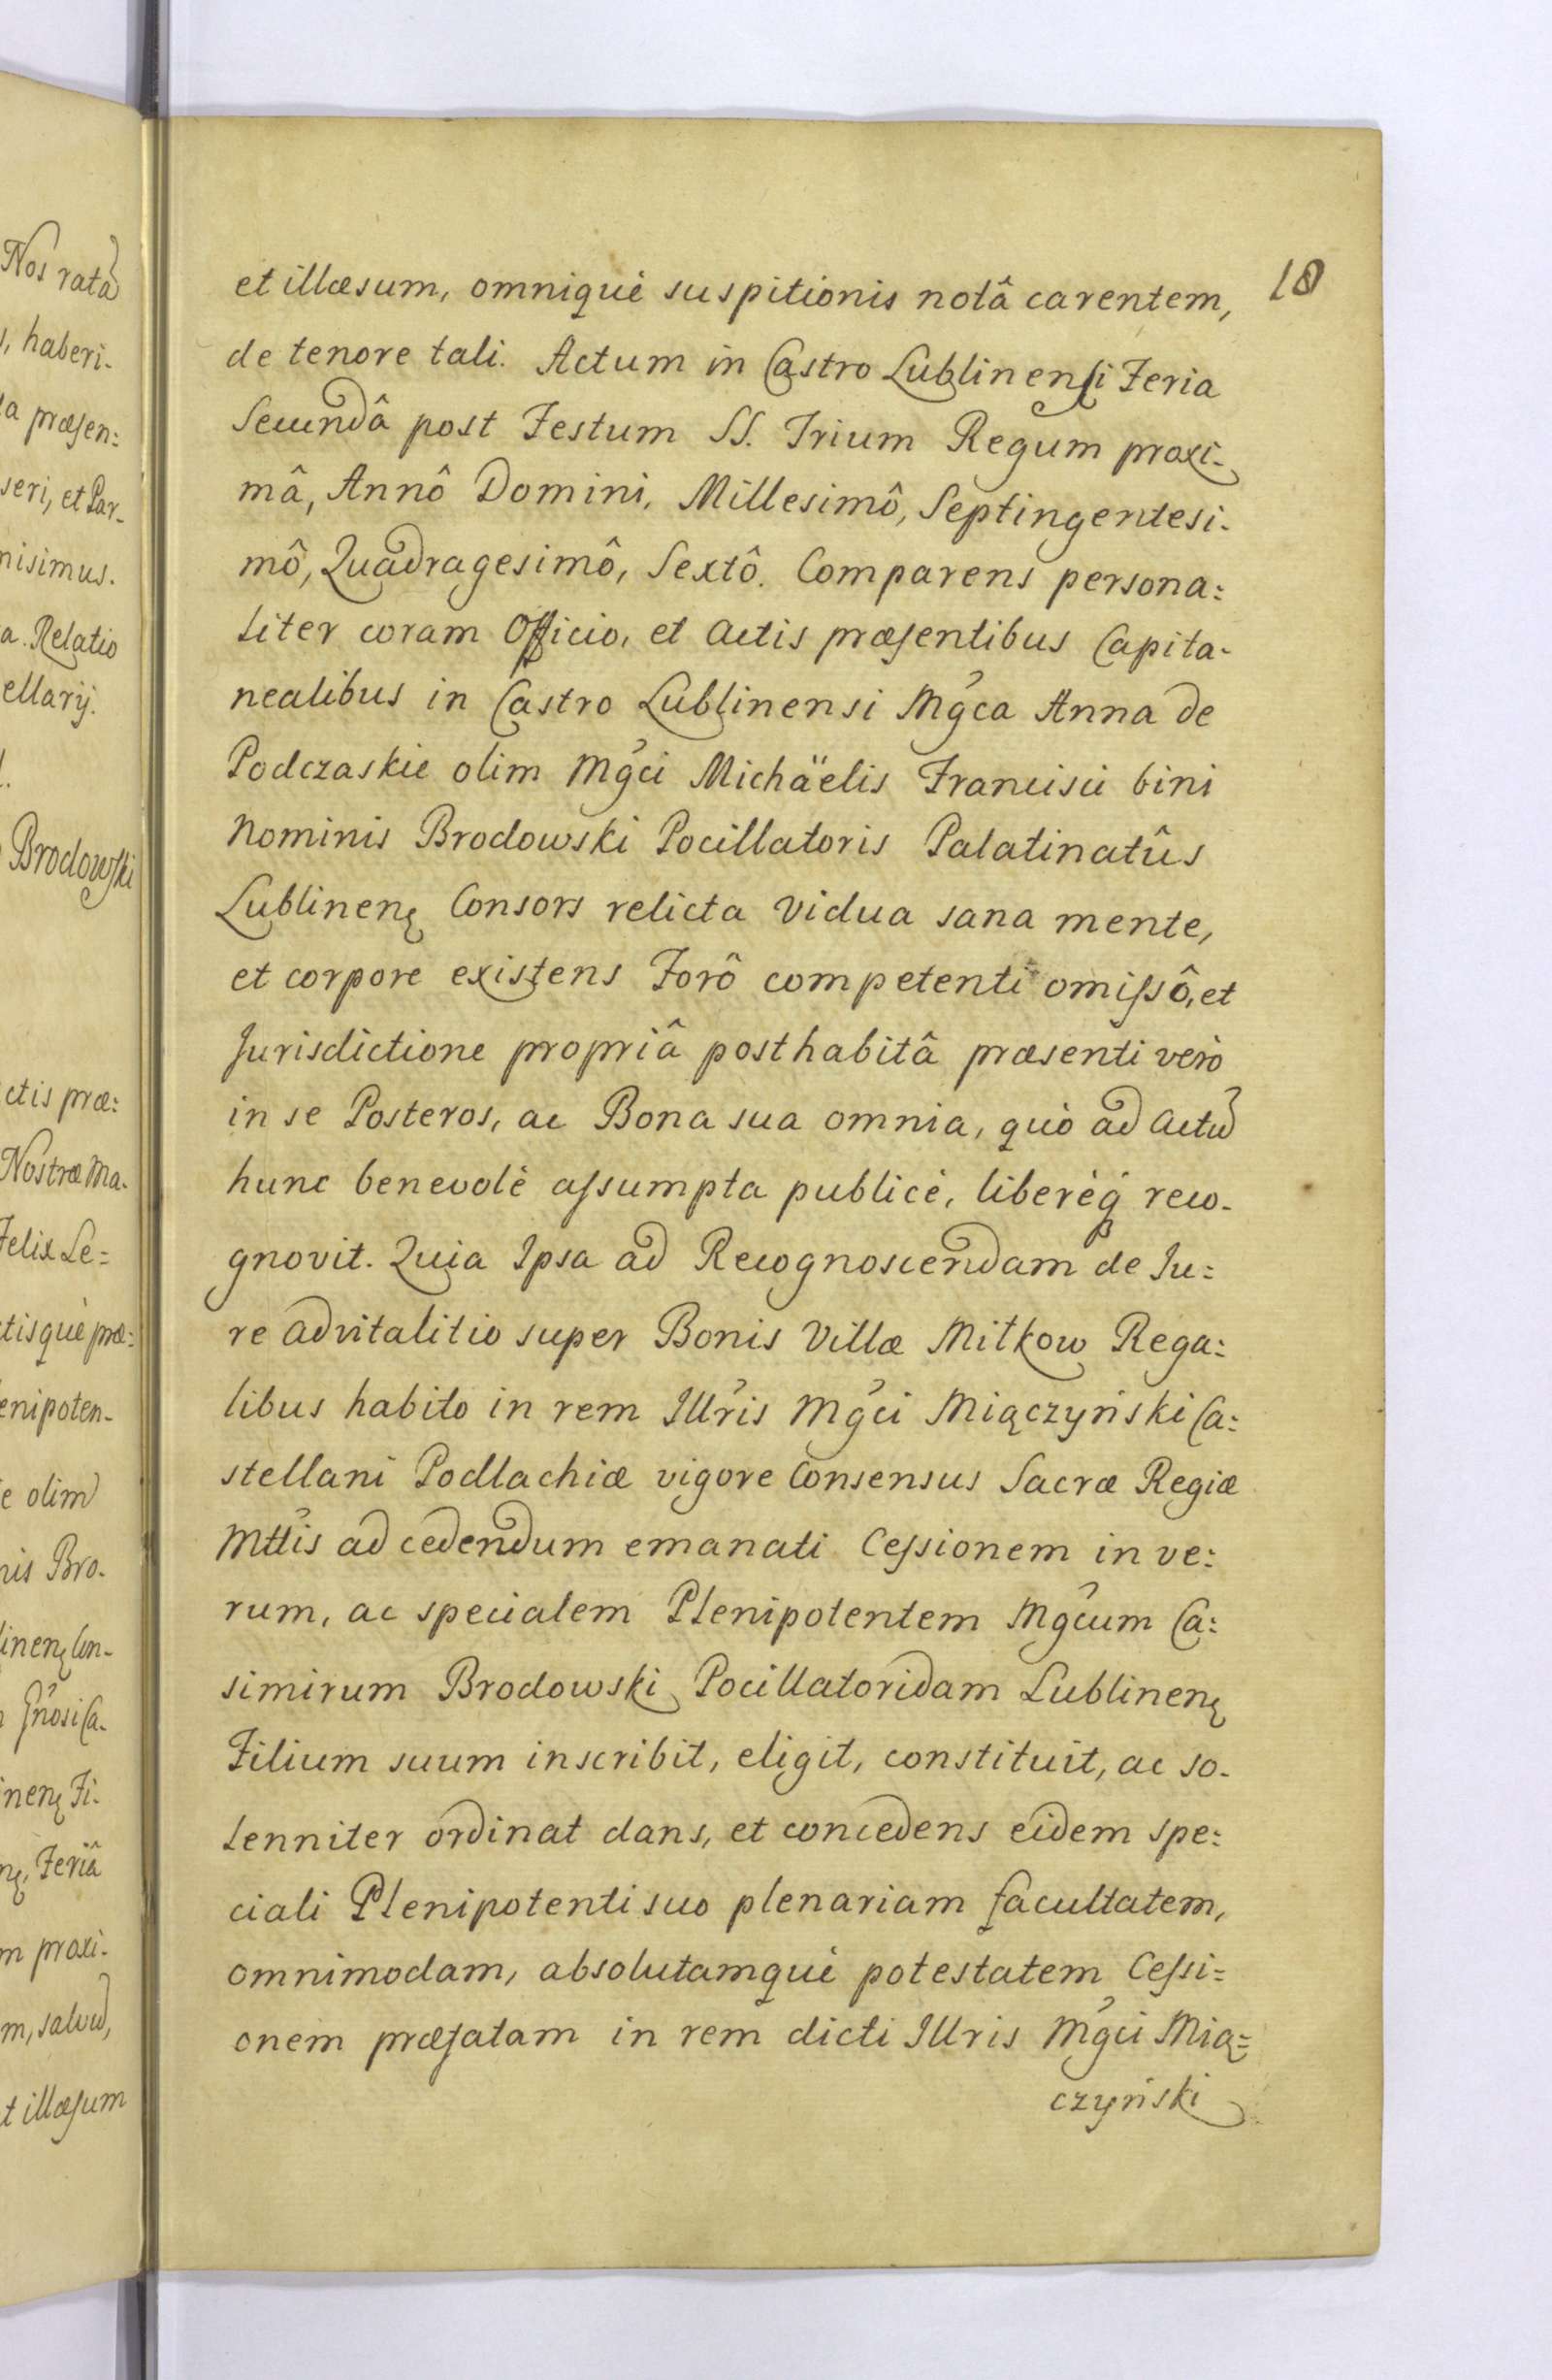 Nos ratã
, haberi.
a præsen:
seri, et Par-
nisimus.
a. Relatio
ellarij.
Brodowski
ctis præ:
Nostræ Ma.
Felix Le=
tisquè præ:
enipoten-
e olim
nis Bro.
linenę Con-
Gnosi Ca-
inenę Fi-
nę, Feriâ
m proxi-
m, salvũ,
t illæsum
10
et illæsum, omniquè suspitionis notâ carentem,
de tenore tali. Actum in Castro Lublinensi Feria
Secundâ post Festum SS. Trium Regum proxi-
mâ, Annô Domini, Millesimô, Septingentesi-
mô, Quadragesimô, Sextô. Comparens persona:
liter coram Officio, et Actis præsentibus Capita-
nealibus in Castro Lublinensi Mgca Anna de
Podczaskie olim Mgci Michäelis Francisci bini
Nominis Brodowski Pocillatoris Palatinatûs
Lublinenę Consors relicta Vidua sana mente,
et corpore existens Forô competenti omissô, et
Jurisdictione propriâ posthabitâ præsenti verò
in se Posteros, ac Bona sua omnia, quò ad Actũ
hunc benevolè assumpta publicè, liberèq́ reco-
gnovit. Quia Ipsa ad Recognoscendam de Ju=
re advitalitio super Bonis Villæ Mitkow Rega:
libus habito in rem Illris Mgci Miączyński Ca:
stellani Podlachiæ vigore Consensus Sacræ Regiæ
Mttis ad cedendum emanati Cessionem in ve:
rum, ac specialem Plenipotentem Mgcum Ca:
simirum Brodowski Pocillatoridam Lublinenę
Filium suum inscribit, eligit, constituit, ac so-
lenniter ordinat dans, et concedens eidem spe:
ciali Plenipotenti suo plenariam facultatem,
omnimodam, absolutamquè potestatem Cessi=
onem præfatam in rem dicti Illris Mgci Mią=
czyński